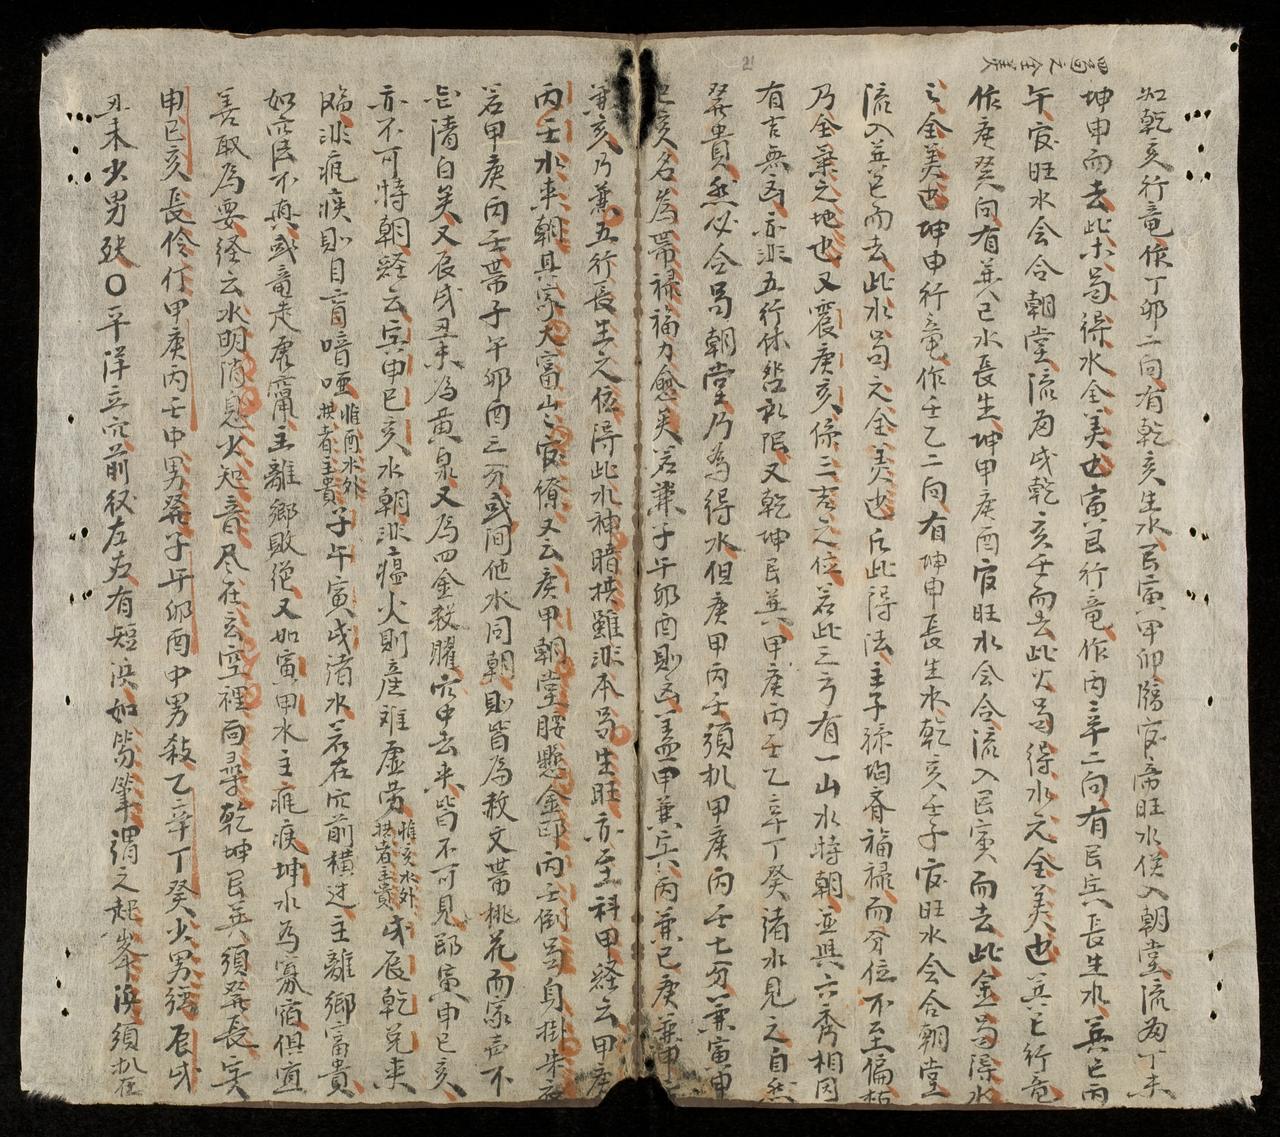 四局之全美
如乾亥行竜作丁卯二向有乾亥生水艮寅甲卯臨官帝旺水俱入朝堂流為丁未
坤申而去此木局得水全美也寅艮行竜作丙辛二向有艮寅長生水巽巳丙
午官旺水会合朝堂流為戌乾亥壬而去此火局得水之全美也巽巳行竜
作庚癸向有巽巳水長生坤申庚酉官旺水会合流入艮寅而去此金局得水
之全美也坤申行竜作壬乙二向有坤申長生水乾亥壬子官旺水会合朝堂
流入巽巳而去此水局之全美也凡此得法主子孫均齊福禄而分位不至偏枯
乃全美之地也又震庚亥係三吉之位若此三方有一山水特朝並與六秀相因
有吉無凶亦非五行休咎所限又乾坤艮巽甲庚丙壬乙辛丁癸諸水見之自然
發貴然必合局朝堂乃為得水但庚甲丙壬須扒甲庚丙壬七分兼寅申
巳亥名為帶禄福力愈美若兼子午卯酉則凶盖甲兼寅丙兼巳庚兼申壬
兼亥乃兼五行長生之位得此水神暗拱雖非本局生旺亦至科甲経云甲庚
丙壬水来朝其家大富山官僚又云庚甲朝堂腰懸金印丙壬倒局身掛朱衣
若甲庚丙壬帶子午卯酉三分或間他水同朝則皆為救文帶桃花而家声不
清白矣又辰戌丑未為黃泉又為四金殺曜穴中去来皆不可見即寅申巳亥
亦不可特朝経云寅申巳亥水朝非瘟火則產难虚劳惟亥水外拱者主貴戌辰乾兌来
臨非疵疾則目盲喑啞惟酉水外拱者主貴子午寅戌渚水若在穴前横过主離鄉富貴
如浮不真或竜走虎竄主離鄉敗絶又如寅甲水主疵疾坤水為寡宿俱宜
善取為要経云水明消息少知音尽在玄空裡面尋乾坤艮巽須發長寅
申巳亥長伶仃甲庚丙壬中男發子午卯酉中男殺乙辛丁癸少男强辰戌
丑未少男殃〇平洋立穴前後左右有短浜如筆謂之起峯浜須扒在